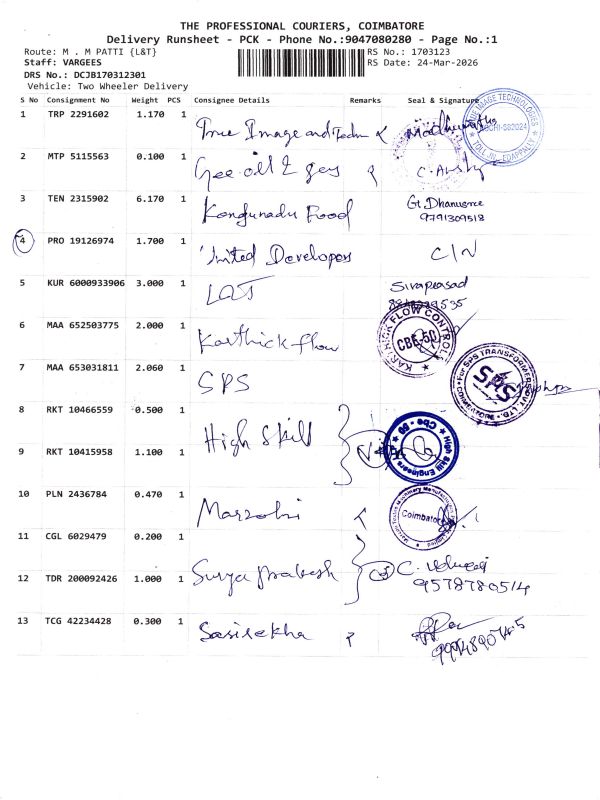 THE PROFESSIONAL COURIERS, COIMBATORE
Delivery Runsheet - PCK - Phone No.:9047080280 - Page No.:1
Route: M . M PATTI {L&T} RS No.: 1703123
Staff: VARGEES RS Date: 24-Mar-2026
DRS No.: DCJB170312301
Vehicle: Two Wheeler Delivery
S No Consignment No Weight PCS Consignee Details Remarks Seal & Signature
1 TRP 2291602 1.170 1 True Image and
2 MTP 5115563 0.100 1 Gee oil & gas
3 TEN 2315902 6.170 1 Kongunadu Food Gt. Dhanusree
9791309518
4 PRO 19126974 1.700 1 United Developers C/N
5 KUR 6000933906 3.000 1 L&T Sivaprasad
6 MAA 652503775 2.000 1 Karthick flow KARTHICK FLOW CONTROL CBE-50
7 MAA 653031811 2.060 1 SPS For SPS TRANSFORMERS PVT. LTD. SPS
8 RKT 10466559 0.500 1 High Skill High Skill Engineers Cbe - 50
9 RKT 10415958 1.100 1
10 PLN 2436784 0.470 1 Coimbatore
11 CGL 6029479 0.200 1
12 TDR 200092426 1.000 1 Surya prakash C.
9578780514
13 TCG 42234428 0.300 1 Sasirekha